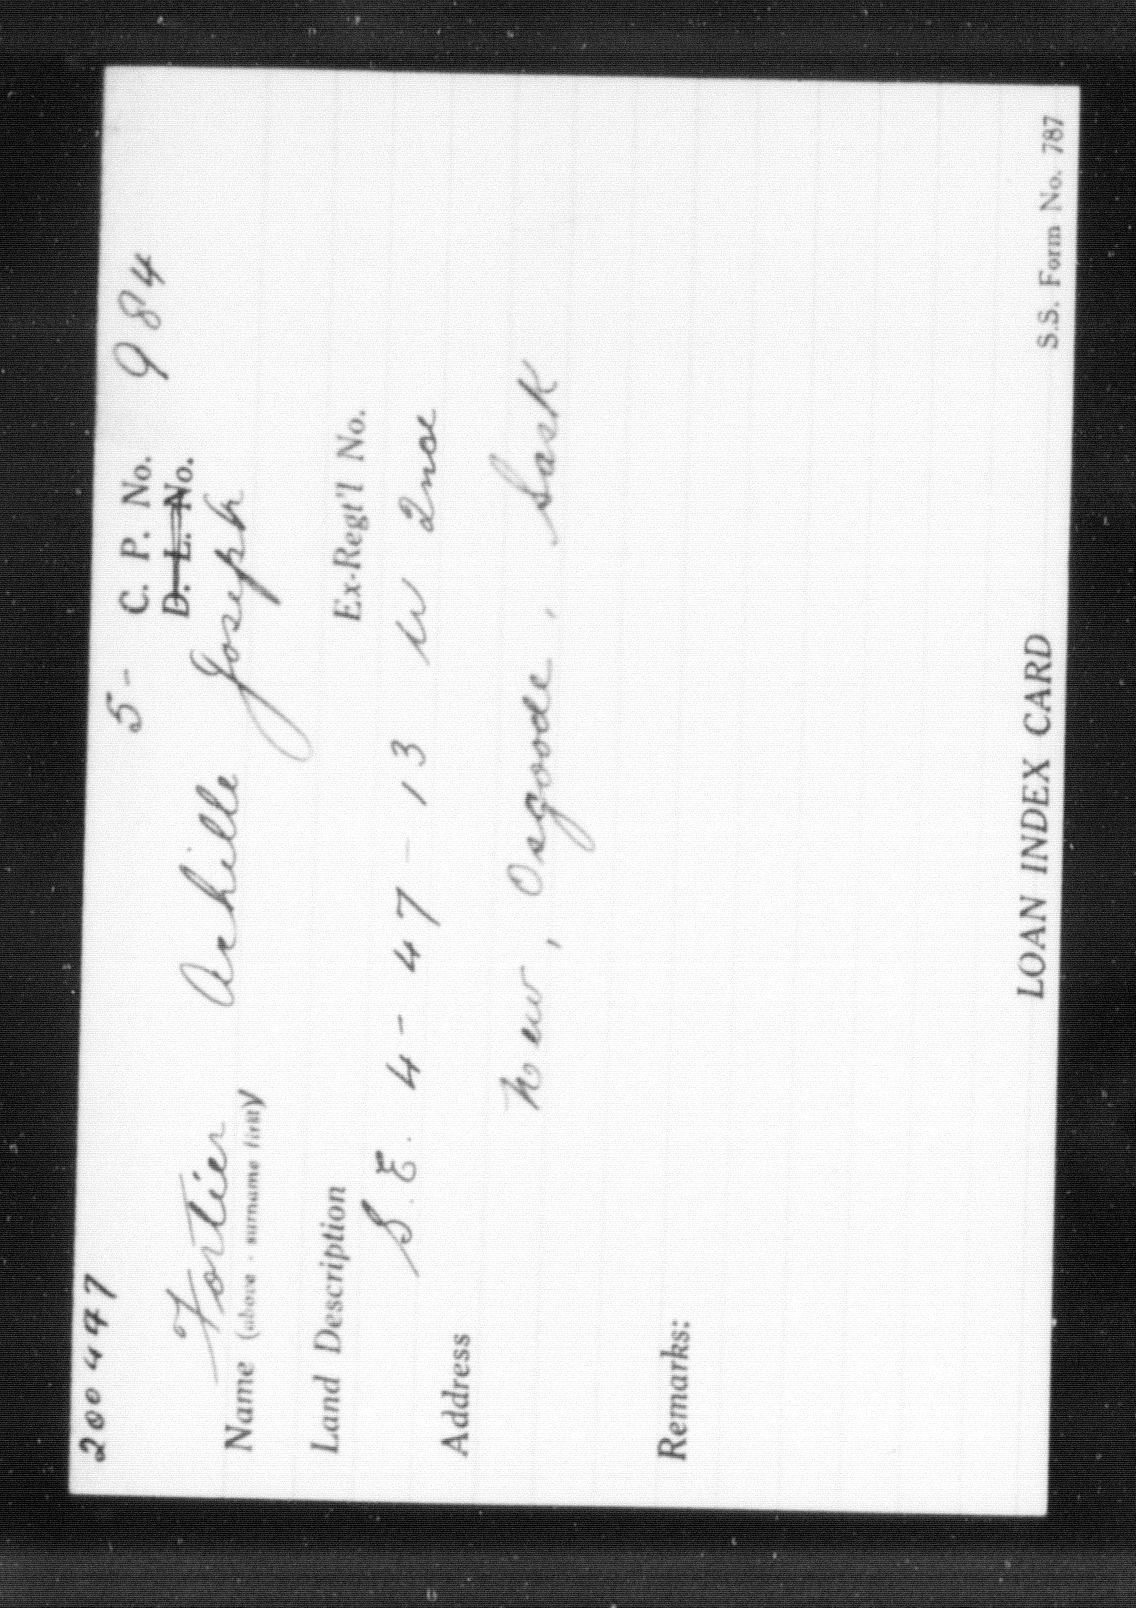 200497
5- C. P. No. 984
D. L. No.
Fortier Achille Joseph
Name (above - surname first)
Land Description Ex-Regt'l No.
S.E. 4 - 47 - 13 W 2nd
Address
New, Osgoode, Sask
Remarks:
LOAN INDEX CARD
S.S. Form No. 787